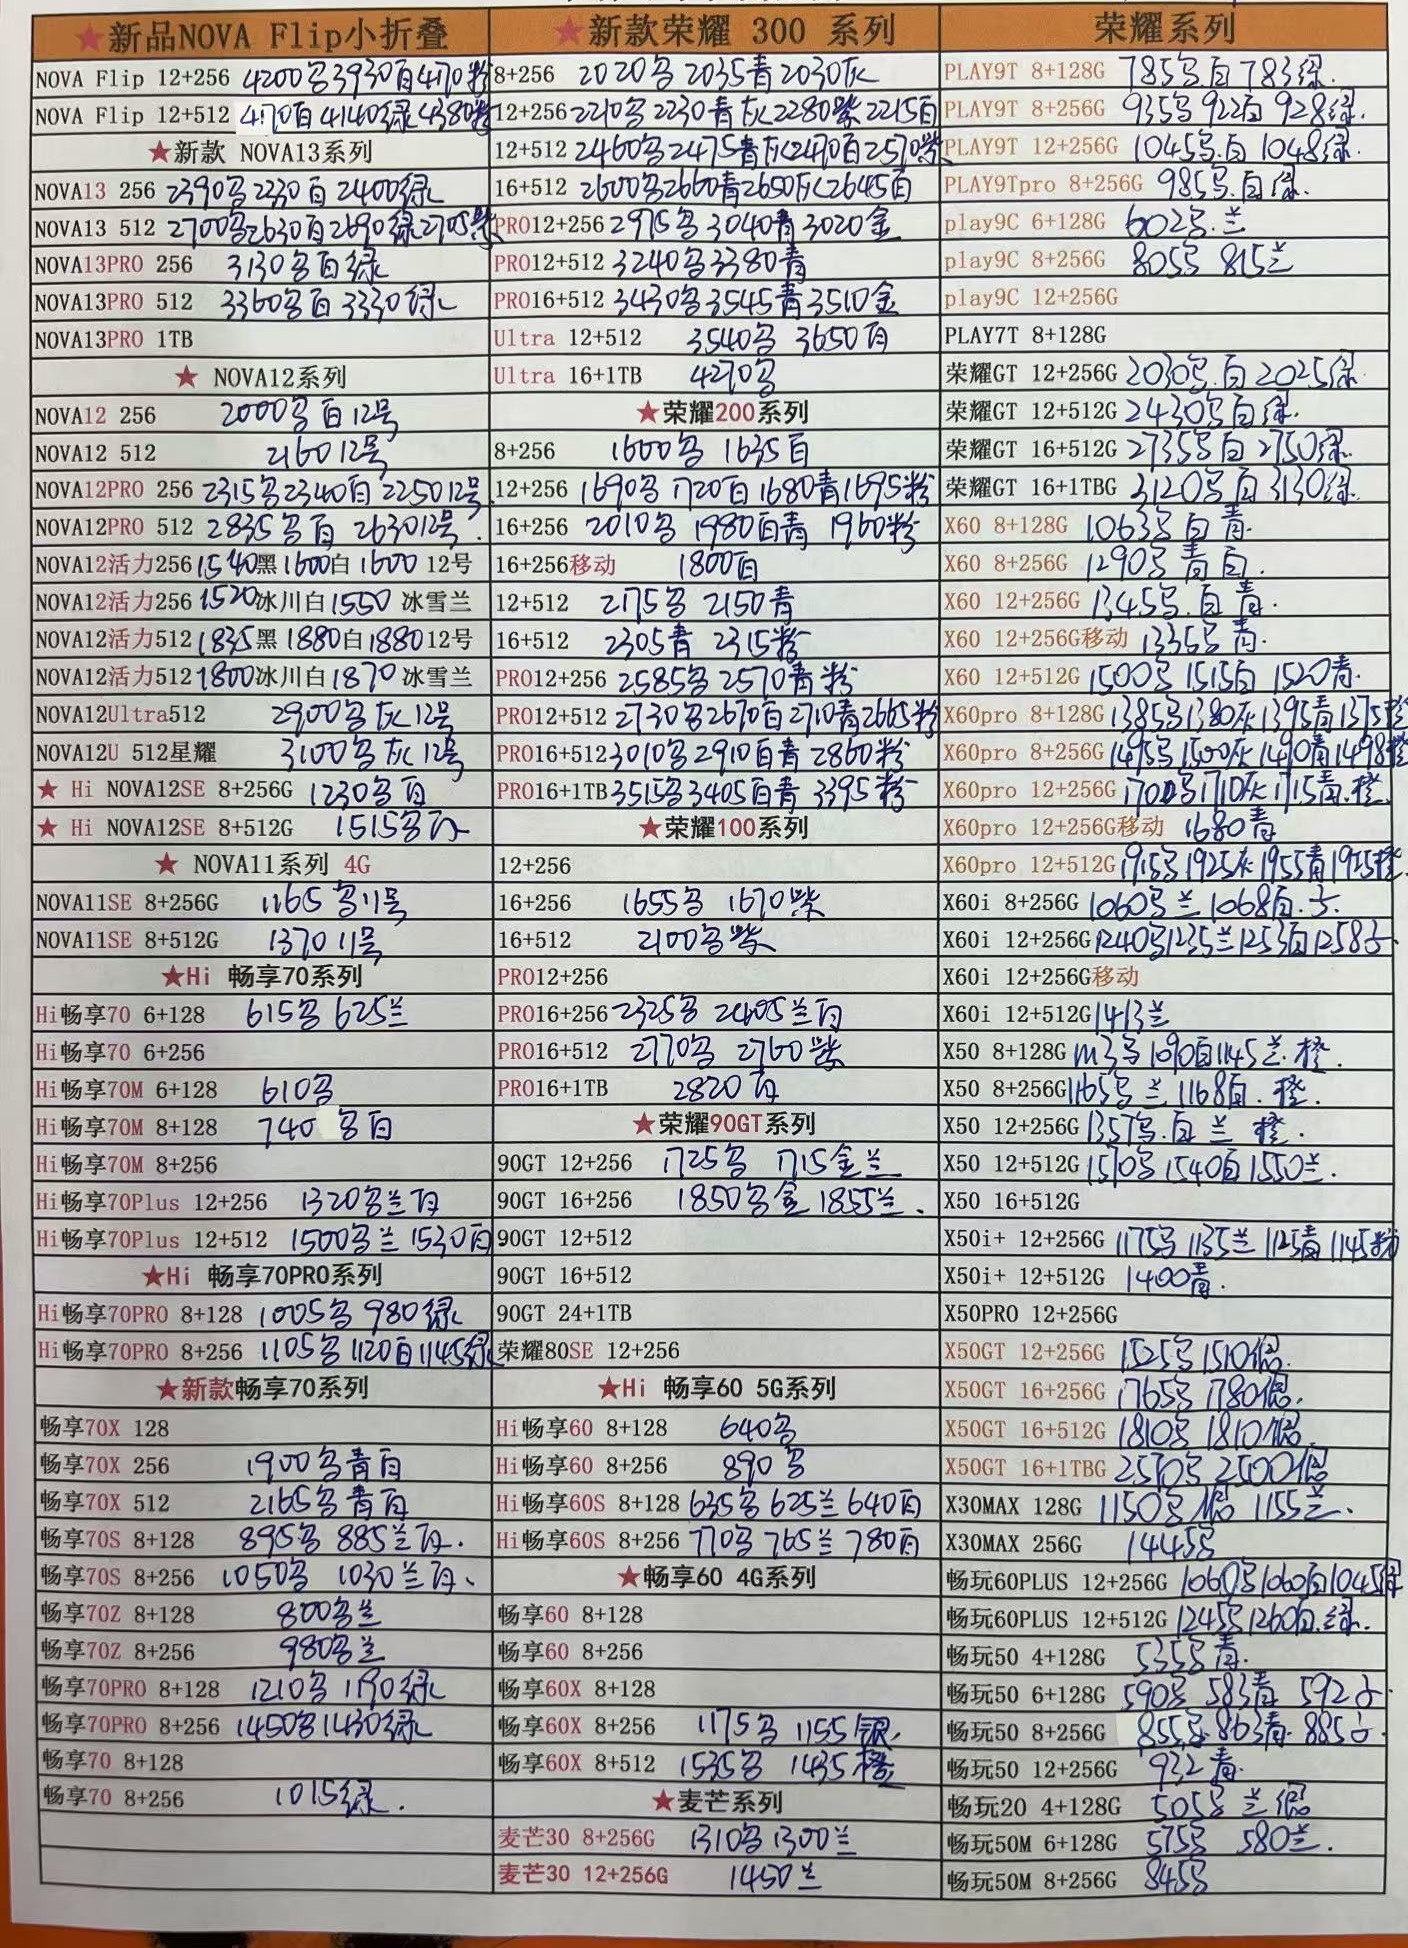 ★新品NOVA Flip小折叠
NOVA Flip 12+256 4200乌3930百4170粉
NOVA Flip 12+512 4170百4140绿4380粉
★新款 NOVA13系列
NOVA13 256 2390乌2230百2400绿
NOVA13 512 2700乌2630百2690绿2705紫
NOVA13PRO 256 3130乌百绿
NOVA13PRO 512 3360乌百3330绿
NOVA13PRO 1TB
★ NOVA12系列
NOVA12 256 2000乌百12号
NOVA12 512 216012号
NOVA12PRO 256 2315乌2340百225012号
NOVA12PRO 512 2835乌百263012号
NOVA12活力256 1540黑1600白1600 12号
NOVA12活力256 1520冰川白1550 冰雪兰
NOVA12活力512 1835黑1880白1880 12号
NOVA12活力512 1800冰川白1870 冰雪兰
NOVA12Ultra512 2900乌灰12号
NOVA12U 512星耀 3100乌灰12号
★ Hi NOVA12SE 8+256G 1230乌百
★ Hi NOVA12SE 8+512G 1515乌百
★ NOVA11系列 4G
NOVA11SE 8+256G 1165乌11号
NOVA11SE 8+512G 137011号
★Hi 畅享70系列
Hi畅享70 6+128 615乌625兰
Hi畅享70 6+256
Hi畅享70M 6+128 610乌
Hi畅享70M 8+128 740乌百
Hi畅享70M 8+256
Hi畅享70Plus 12+256 1320乌兰百
Hi畅享70Plus 12+512 1500乌兰1530百
★Hi 畅享70PRO系列
Hi畅享70PRO 8+128 1005乌980绿
Hi畅享70PRO 8+256 1105乌1120百1145绿
★新款畅享70系列
畅享70X 128
畅享70X 256 1900乌青百
畅享70X 512 2165乌青百
畅享70S 8+128 895乌885兰百.
畅享70S 8+256 1050乌1030兰百、
畅享70Z 8+128 800乌兰
畅享70Z 8+256 980乌兰
畅享70PRO 8+128 1210乌1190绿
畅享70PRO 8+256 1450乌1430绿
畅享70 8+128
畅享70 8+256 1015绿.
★新款荣耀 300 系列
8+256 2020乌2035青2030灰
12+256 2210乌2230青灰2280紫2215百
12+512 2460乌2475青灰2470百2570紫
16+512 2600乌2660青2650灰2645百
PRO12+256 2975乌3040青3020金
PRO12+512 3240乌3380青
PRO16+512 3430乌3545青3510金
Ultra 12+512 3540乌3650百
Ultra 16+1TB 4270乌
★荣耀200系列
8+256 1600乌1635百
12+256 1690乌1720百1680青1695粉
16+256 2010乌1980百青1960粉
16+256移动 1800百
12+512 2175乌2150青
16+512 2305青2315粉
PRO12+256 2585乌2570青粉
PRO12+512 2730乌2670百2710青2665粉
PRO16+512 3010乌2910百青2860粉
PRO16+1TB 3515乌3405百青3395粉
★荣耀100系列
12+256
16+256 1655乌1670紫
16+512 2100乌紫
PRO12+256
PRO16+256 2325乌2405兰百
PRO16+512 2770乌2760紫
PRO16+1TB 2820百
★荣耀90GT系列
90GT 12+256 1725乌1715金兰
90GT 16+256 1850乌金1855兰、
90GT 12+512
90GT 16+512
90GT 24+1TB
荣耀80SE 12+256
★Hi 畅享60 5G系列
Hi畅享60 8+128 640乌
Hi畅享60 8+256 890乌
Hi畅享60S 8+128 635乌625兰640百
Hi畅享60S 8+256 770乌765兰780百
★畅享60 4G系列
畅享60 8+128
畅享60 8+256
畅享60X 8+128
畅享60X 8+256 1175乌1155银
畅享60X 8+512 1535乌1435橙
★麦芒系列
麦芒30 8+256G 1310乌1300兰
麦芒30 12+256G 1450兰
荣耀系列
PLAY9T 8+128G 785乌.百783绿.
PLAY9T 8+256G 935乌922百928绿.
PLAY9T 12+256G 1045乌.百1048绿.
PLAY9Tpro 8+256G 985乌.百绿.
play9C 6+128G 602乌.兰
play9C 8+256G 805乌815兰
play9C 12+256G
PLAY7T 8+128G
荣耀GT 12+256G 2030乌.百2025绿
荣耀GT 12+512G 2430乌百绿.
荣耀GT 16+512G 2735乌百2750绿.
荣耀GT 16+1TBG 3120乌百3130绿.
X60 8+128G 1063乌百青.
X60 8+256G 1290乌青百.
X60 12+256G 1345乌.百青.
X60 12+256G移动 1335乌青.
X60 12+512G 1500乌1515百1520青.
X60pro 8+128G 1385乌1380灰1395青1375橙
X60pro 8+256G 1495乌1500灰1490青1498橙
X60pro 12+256G 1700乌1710灰1715青.橙.
X60pro 12+256G移动 1680青
X60pro 12+512G 1915乌1925灰1955青1925橙
X60i 8+256G 1060乌兰1068百.
X60i 12+256G 1240乌1235兰1253百1258
X60i 12+256G移动
X60i 12+512G 1413兰
X50 8+128G 1113乌1090百1145兰.橙.
X50 8+256G 1165乌兰1168百.橙.
X50 12+256G 1357乌.百兰橙.
X50 12+512G 1510乌1540百1550兰.
X50 16+512G
X50i+ 12+256G 1175乌1135兰1125青1145粉
X50i+ 12+512G 1400青.
X50PRO 12+256G
X50GT 12+256G 1525乌1510
X50GT 16+256G 1765乌1780
X50GT 16+512G 1810乌1810
X50GT 16+1TBG 2510乌2500
X30MAX 128G 1150乌 1155兰.
X30MAX 256G 1445乌
畅玩60PLUS 12+256G 1060乌1060百1045绿
畅玩60PLUS 12+512G 1245乌1260百.绿.
畅玩50 4+128G 535乌青.
畅玩50 6+128G 590乌583青592
畅玩50 8+256G 855乌.863青.885
畅玩50 12+256G 932青.
畅玩20 4+128G 505乌兰
畅玩50M 6+128G 575乌580兰.
畅玩50M 8+256G 845乌